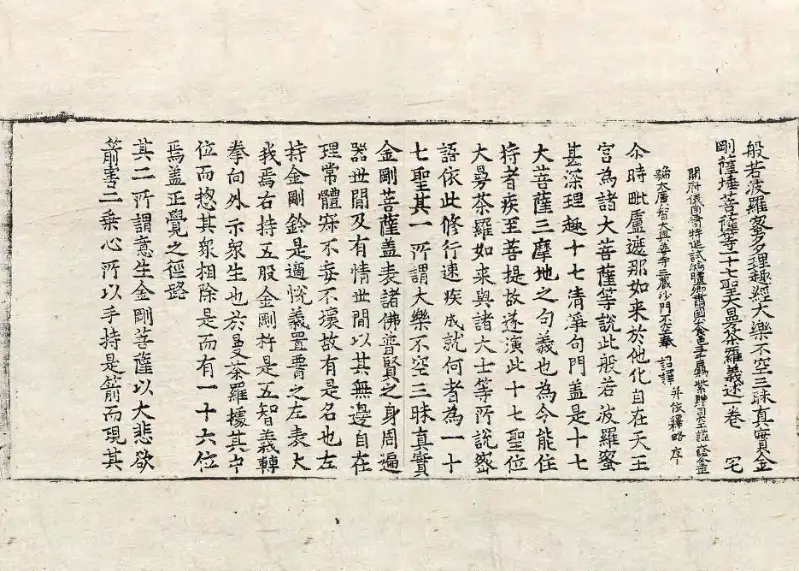 般若波羅蜜多理趣經大樂不空三昧真實金
剛薩埵菩薩等一十七聖大曼荼羅義述一卷 宅
開府儀同三司特進試鴻臚卿肅國公食邑三千戶賜紫贈司空謚大鑒正
號大廣智大興善寺三藏沙門不空奉 詔譯 并依釋略序
尒時毗盧遮那如來於他化自在天王
宮為諸大菩薩等說此般若波羅蜜
甚深理趣十七清淨句門蓋是十七
大菩薩三摩地之句義也為令能住
持者疾至菩提故遂演此十七聖位
大曼荼羅如来與諸大士等所說密
語依此修行速疾成就何者為一十
七聖其一所謂大樂不空三昧真實
金剛菩薩盖表諸佛普賢之身周遍
器世間及有情世間以其無邊自在
理常體寂不妄不壞故有是名也左
持金剛鈴是適悅義置䏶之左表大
我焉右持五股金剛杵是五智義轉
拳向外示衆生也於曼荼羅據其中
位而揔其衆相除是而有一十六位
焉盖正覺之徑路
其二所謂意生金剛菩薩以大悲欲
箭害二乘心所以手持是箭而現其